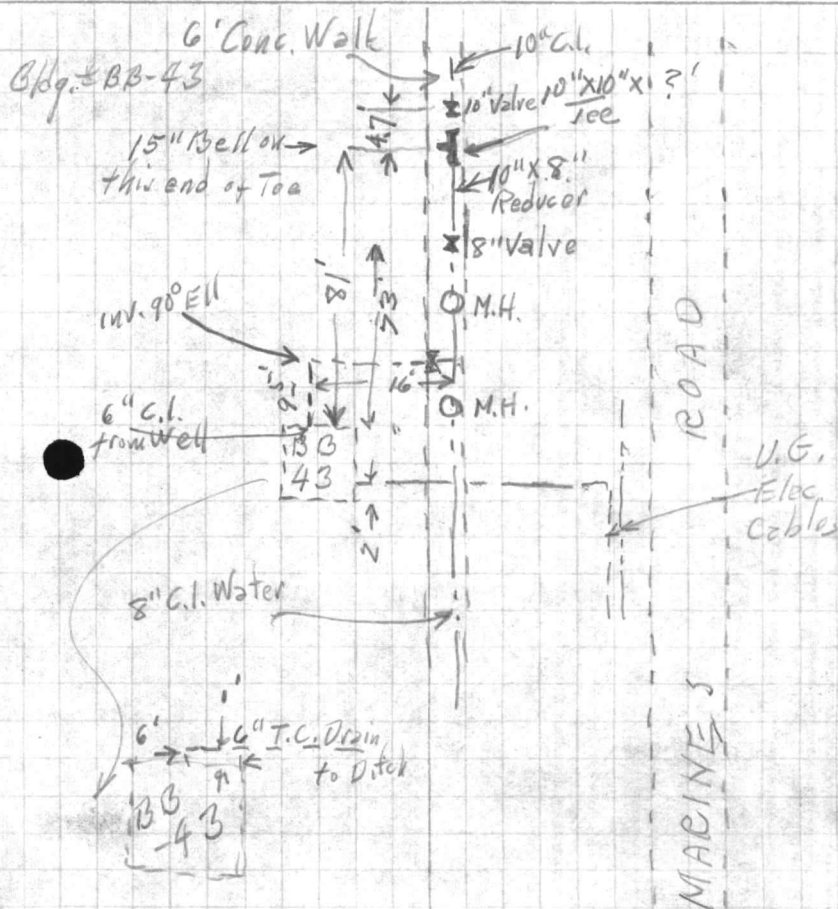 6' Conc. Walk
10" C.I.
Bldg. # BB-43
10" Valve
10" X 10" X ?'
Tee
4.7'
15" Bell on
this end of Tee
10" X 8"
Reducer
8" Valve
81'
53'
Inv. 90° Ell
M.H.
16'
9.5'
M.H.
6" C.I.
from Well
BB
43
ROAD
U.G.
Elec.
Cables
2'
8" C.I. Water
6'
1'
6" T.C. Drain
to Ditch
BB
-43
MARINES